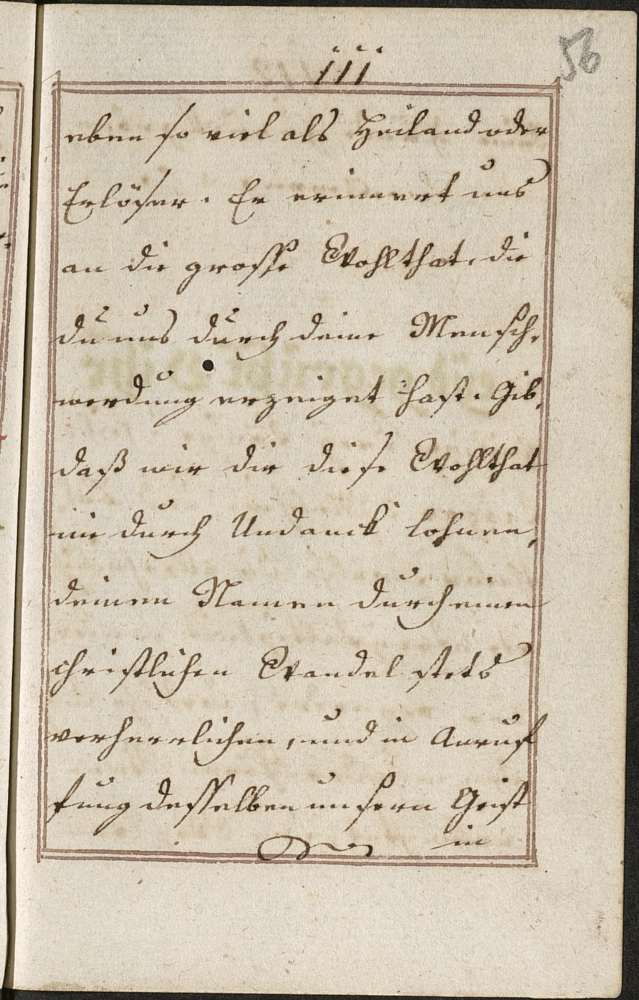 111
56
eben so viel als Heiland oder
Erlöser. Er erinnert uns
an die grosse Wohlthat, die
du uns durch deine Mensch-
werdung erzeiget hast. Gib,
daß wir dir diese Wohlthat
nie durch Undanck lohnen,
deinen Namen durch einen
christlichen Wandel stets
verherrlichen, und in Anruf-
fung desselben unsern Geist
in